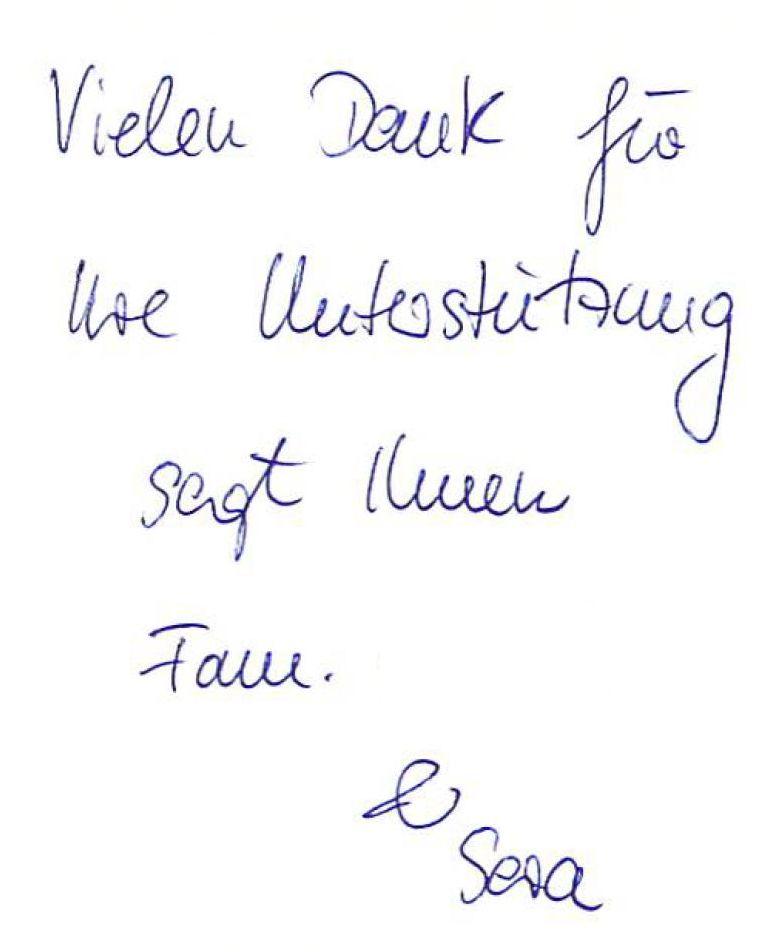 Vielen Dank für
Ihre Unterstützung
sagt Ihnen
Fam.
&
Sera